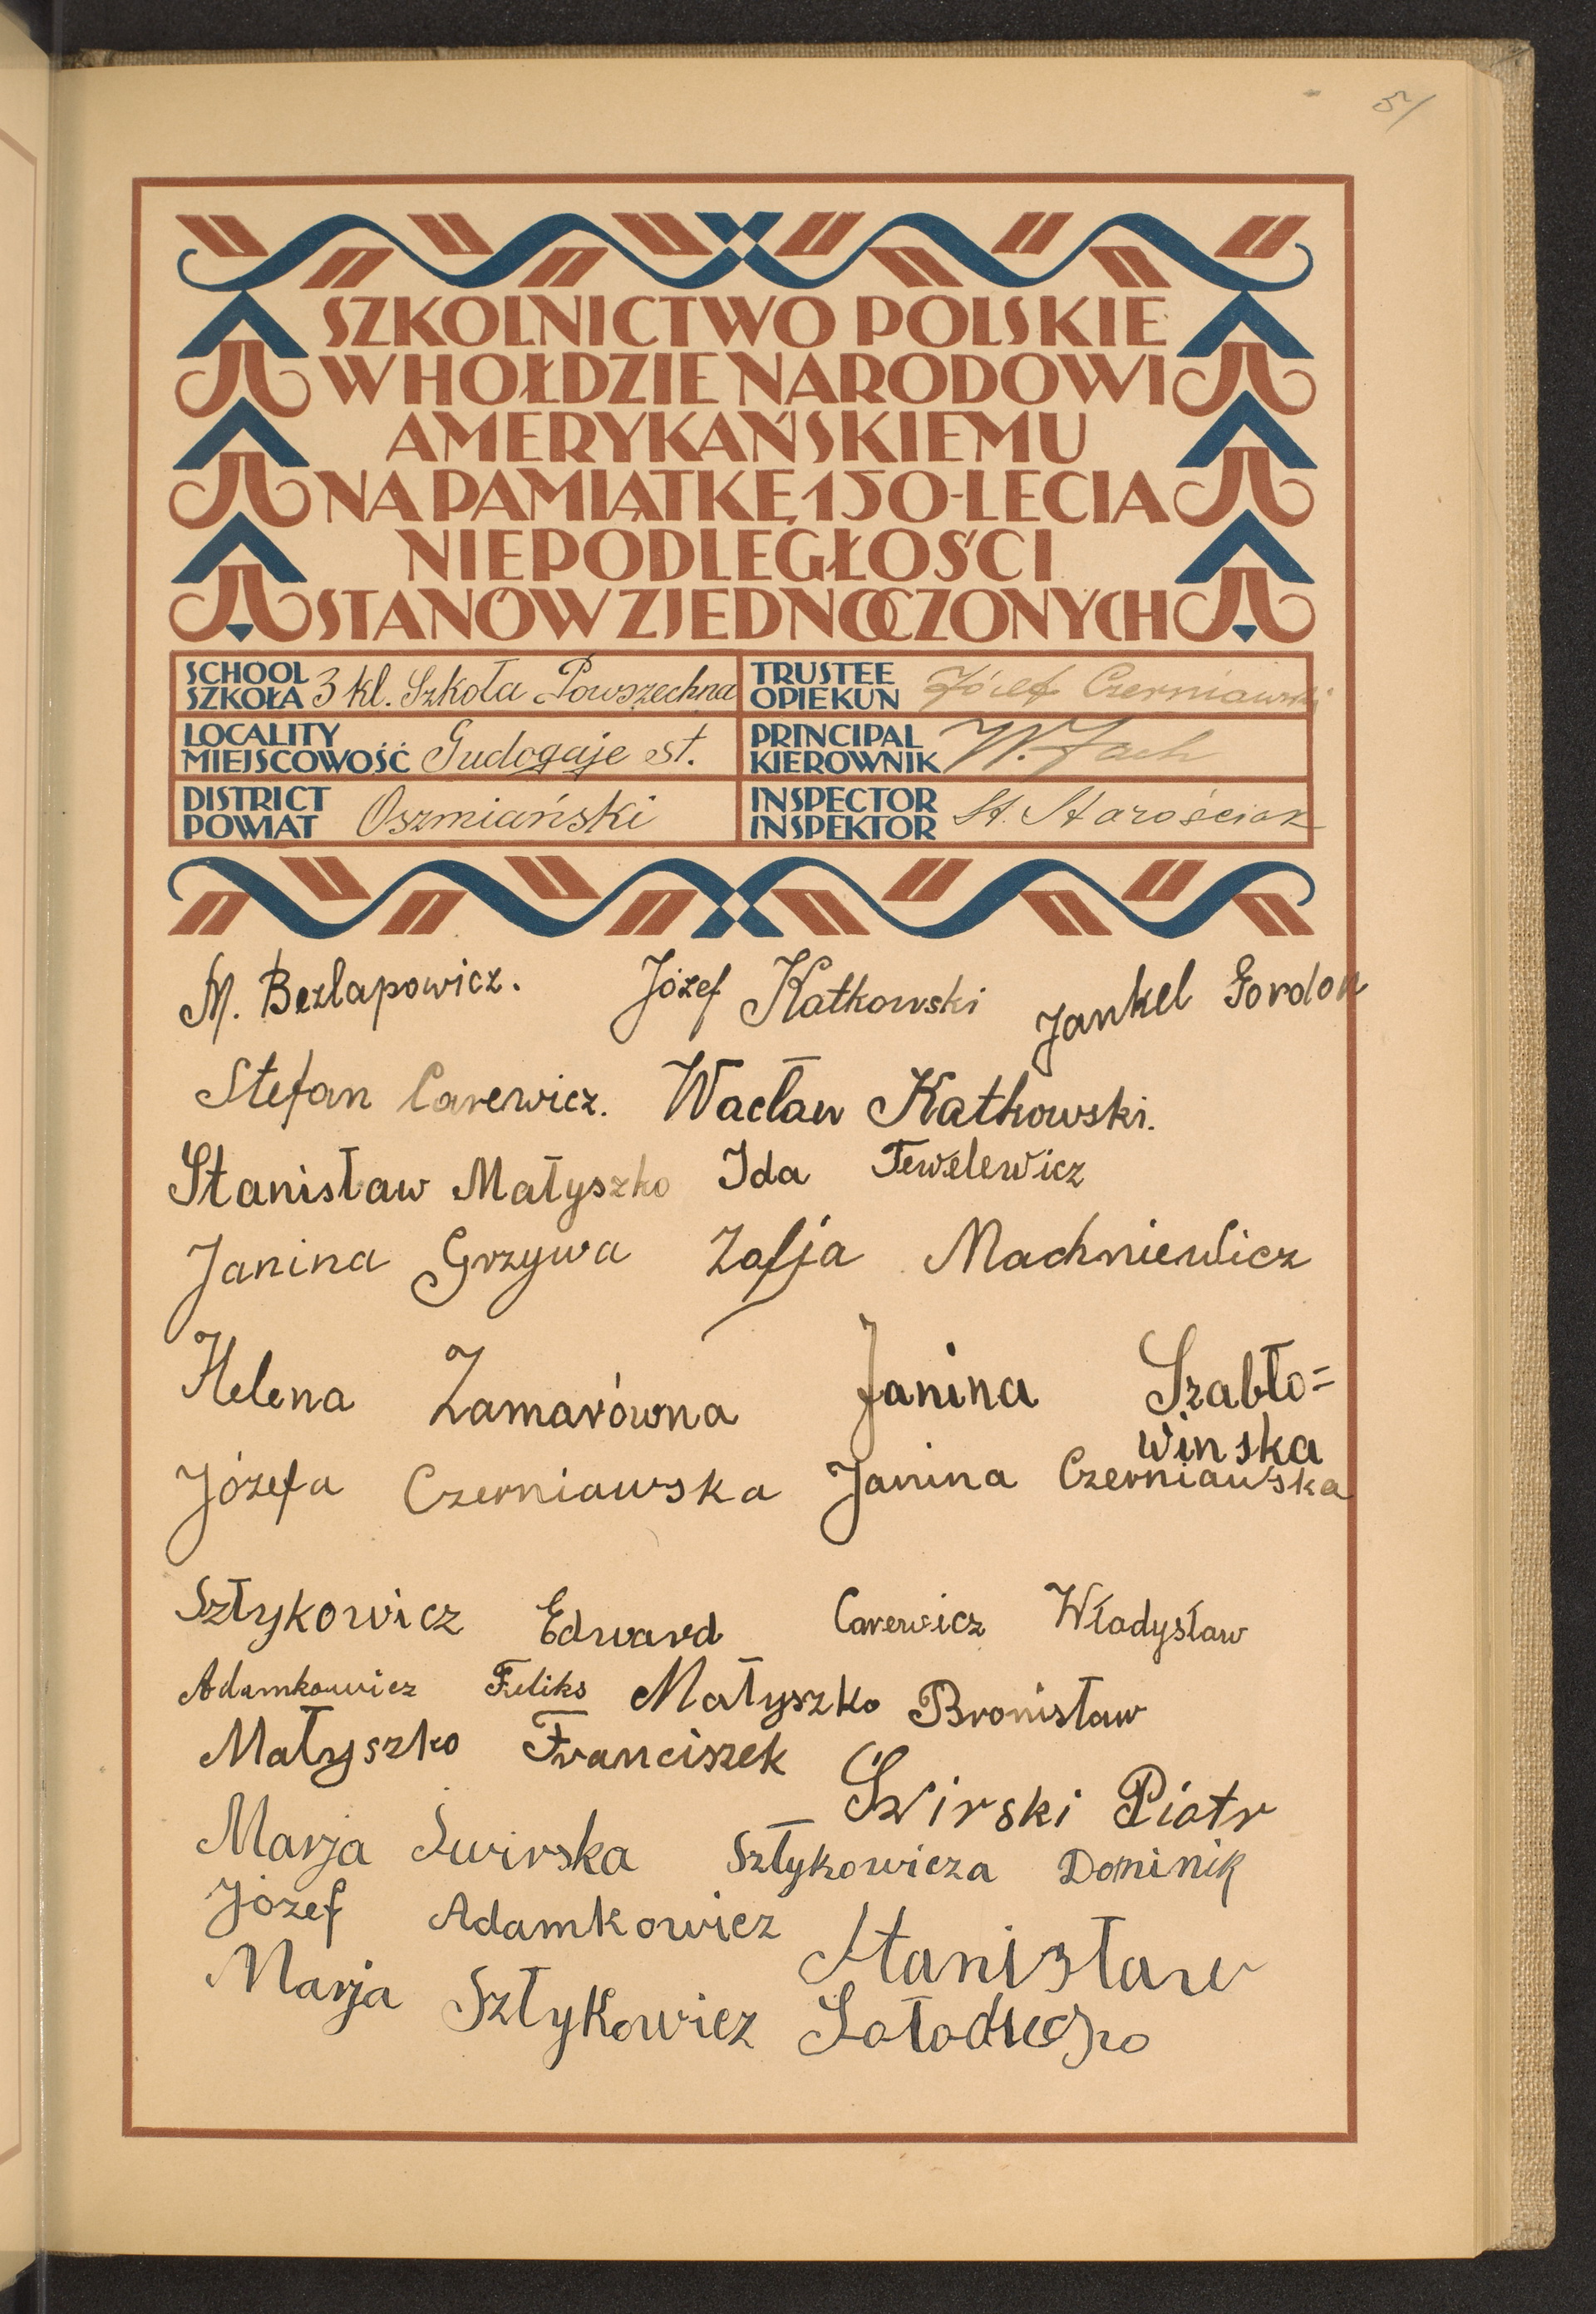 51
SZKOLNICTWO POLSKIE
W HOŁDZIE NARODOWI
AMERYKAŃSKIEMU
NA PAMIĄTKĘ 150-LECIA
NIEPODLEGŁOŚCI
STANÓW ZJEDNOCZONYCH
SCHOOL
SZKOŁA 3 kl. Szkoła Powszechna
TRUSTEE
OPIEKUN Józef Czerniawski
LOCALITY
MIEJSCOWOŚĆ Gudogaje st.
PRINCIPAL
KIEROWNIK W. Zach
DISTRICT
POWIAT Oszmiański
INSPECTOR
INSPEKTOR St. Starościak
M. Bezlapowicz. Józef Katkowski Jankel Gordon
Stefan Carewicz. Wacław Katkowski.
Stanisław Małyszko Ida Tewelewicz
Janina Grzywa Zofja Machniewicz
Helena Zamarówna Janina Szabło=
winska
Józefa Czerniawska Janina Czerniawska
Sztykowicz Edward Carewicz Władysław
Adamkowicz Feliks Małyszko Bronisław
Małyszko Franciszek Świrski Piotr
Marja Świrska Sztykowicza Dominik
Józef Adamkowicz Stanisław
Marja Sztykowicz